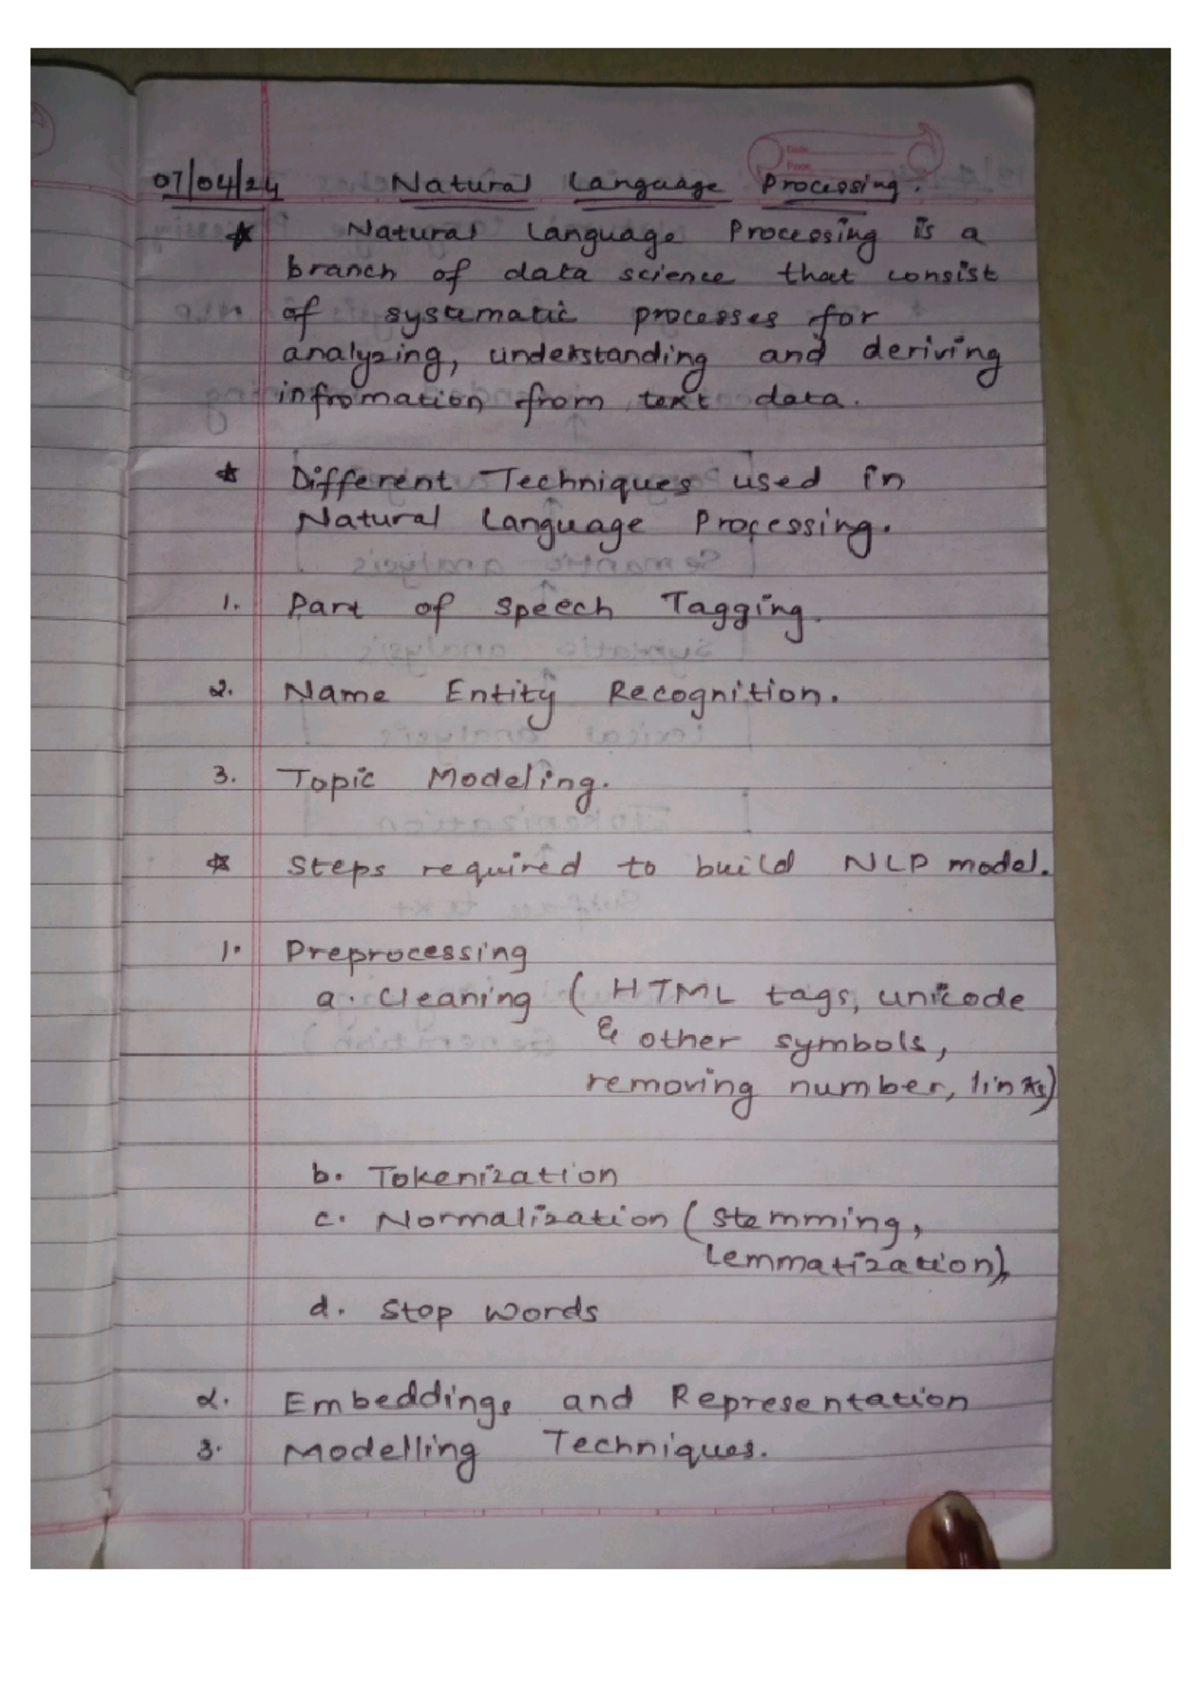 07/04/24 Natural Language Processing.
Date
Page
★ Natural Language Processing is a
branch of data science that consist
of systematic processes for
analyzing, understanding and deriving
infromation from text data.
★ Different Techniques used in
Natural Language Processing.
1. Part of Speech Tagging.
2. Name Entity Recognition.
3. Topic Modeling.
★ Steps required to build NLP model.
1. Preprocessing
a. Cleaning ( HTML tags, unicode
& other symbols,
removing number, links)
b. Tokenization
c. Normalization ( stemming,
Lemmatization),
d. Stop words
2. Embeddings and Representation
3. Modelling Techniques.